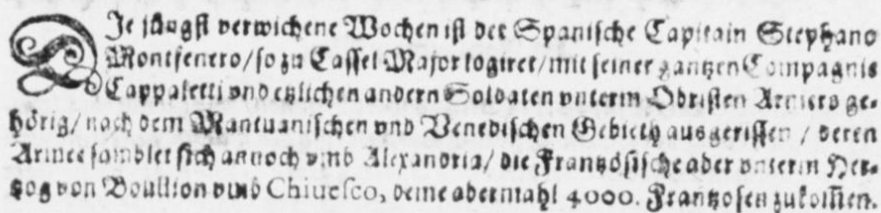 DIe jüngst verwichene Wochen ist der Spanische Capitain Stephano
Montfenero/so zu Cassel Major logiret/mit seiner gantzen Compagnie
Cappaletti vnd etzlichen andern Soldaten vnterm Obristen Arniers ge-
hörig/nach dem Mantuanischen vnd Venedischen Gebieth ausgerissen / deren
Armee samblet sich annoch vmb Alexandria/ die Frantzösische aber vnterm Her-
tzog von Boullion vmb Chiuesco, deme abermahl 4000. Frantzosen zukom̃en.